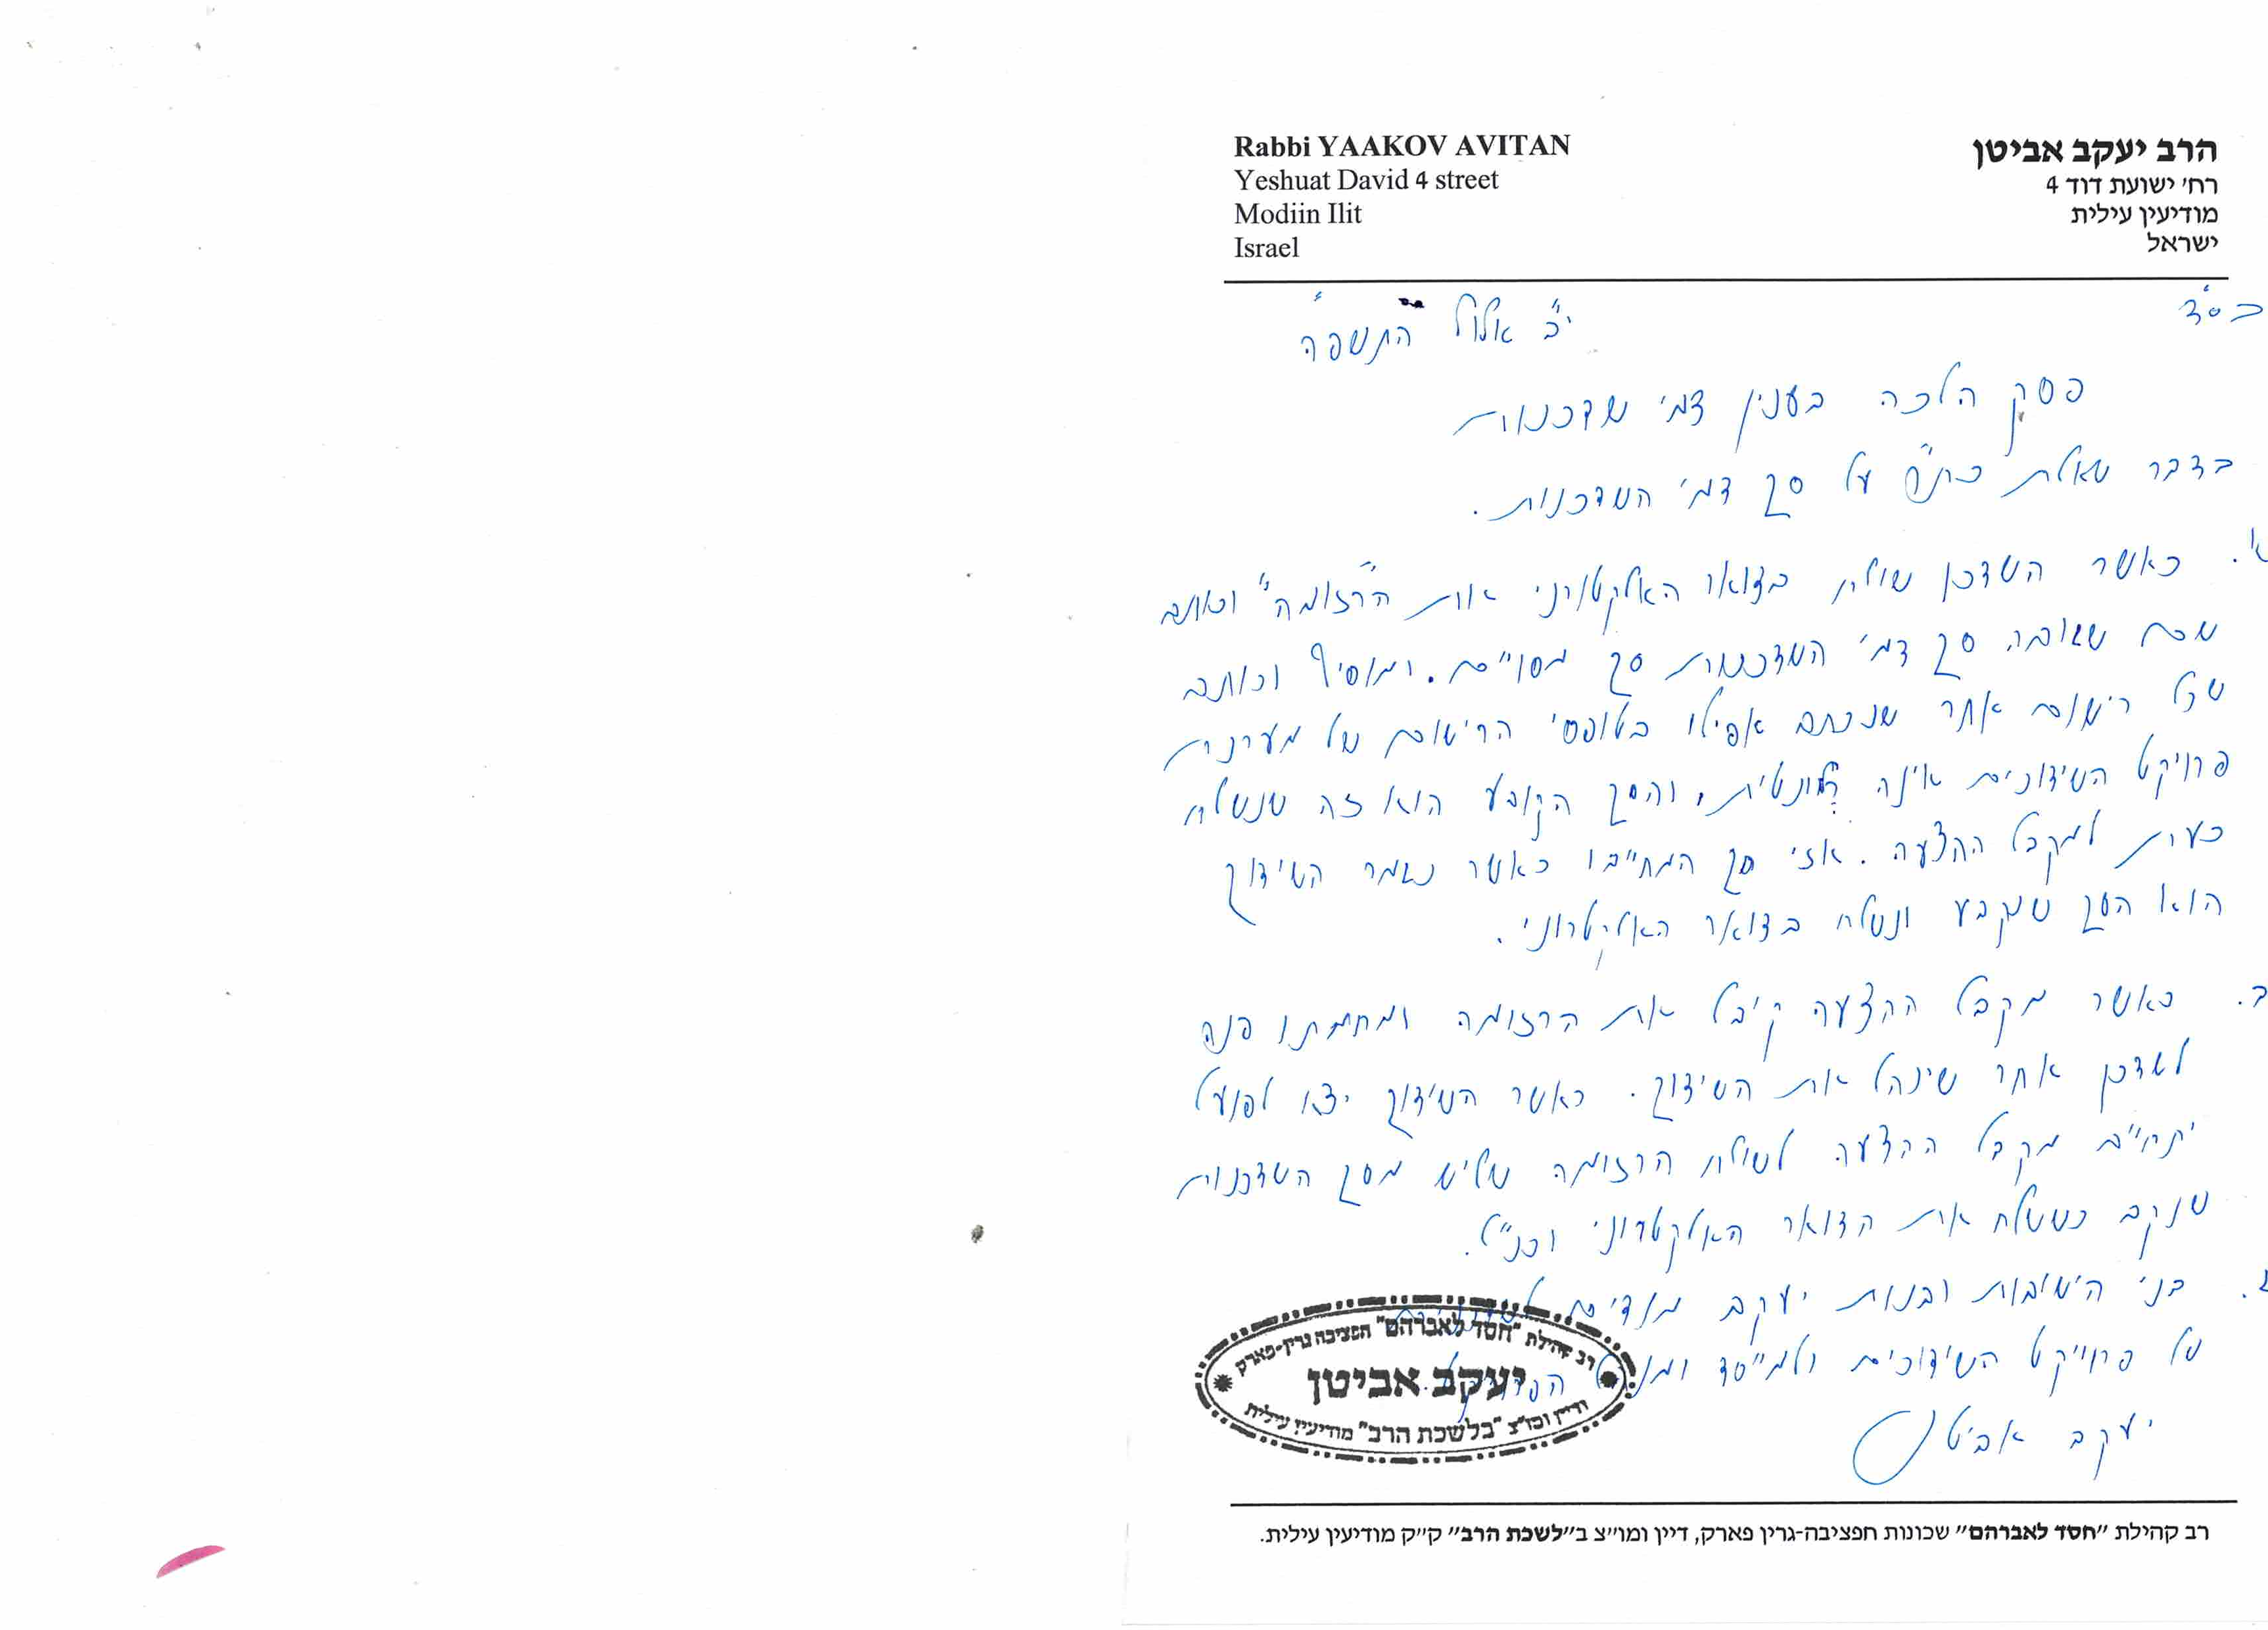 Rabbi YAAKOV AVITAN
Yeshuat David 4 street
Modiin Ilit
Israel
הרב יעקב אביטן
רח' ישועת דוד 4
מודיעין עילית
ישראל
בס"ד
י"ב אלול התשפ"ה
פסק הלכה בענין דמי שדכנות
בדבר שאלת כת"ר על סך דמי השדכנות.
א. כאשר השדכן שולח בדואר האלקטרוני את ה"רזומה" וכותב
שכם שגובה סך דמי השדכנות סך מסויים. ומוסיף וכותב
שכל רישום אחר שנכתב אפילו בטופסי הרישום של מערכת
פרויקט השידוכים אינה רלוונטית, והסך הקובע הוא זה שנשלח
כעת למקבל ההצעה. אזי סך המחייבו כאשר נגמר השידוך
הוא הסך שנקבע ונשלח בדואר האלקטרוני.
ב. כאשר מקבל ההצעה קיבל את הרזומה ומחמתו פנה
לשדכן אחר שינהל את השידוך. כאשר השידוך יצא לפועל
יתחייב מקבל ההצעה לשולח הרזומה שליש מסך השדכנות
שנקב כששלח את הדואר האלקטרוני וכנ"ל.
בני הישיבות ובנות יעקב מודים
על פרוייקט השידוכים ולמייסד ומנהל הפרוייקט.
יעקב אביטן
רב קהילת "חסד לאברהם" חפציבה גרין-פארק
יעקב אביטן
ודיין ומו"צ "בלשכת הרב" מודיעין עילית
רב קהילת "חסד לאברהם" שכונות חפציבה-גרין פארק, דיין ומו"צ ב"לשכת הרב" ק"ק מודיעין עילית.